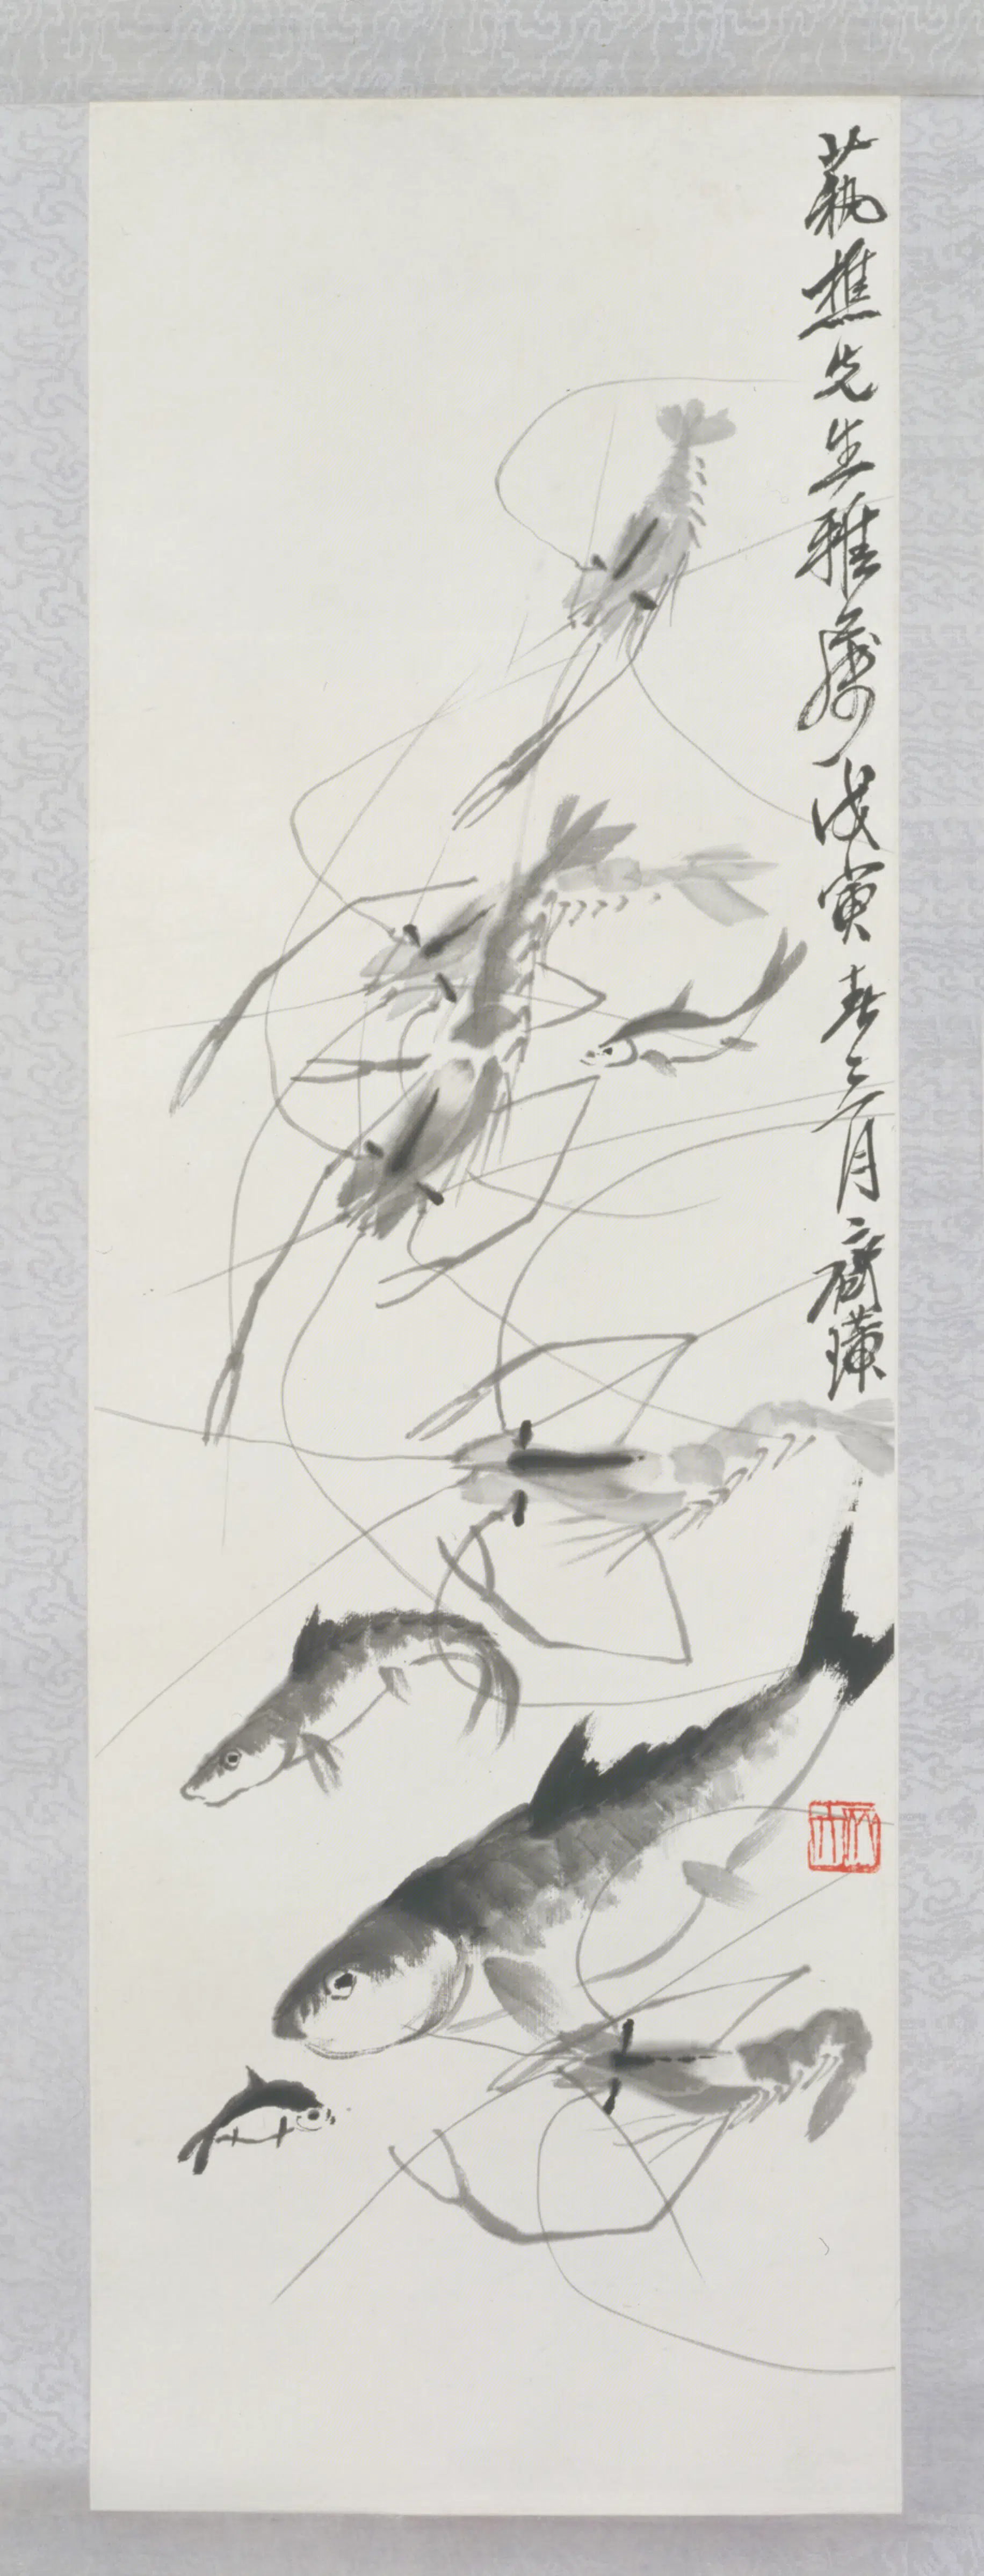 藝樵先生雅屬戊寅春三月齊璜